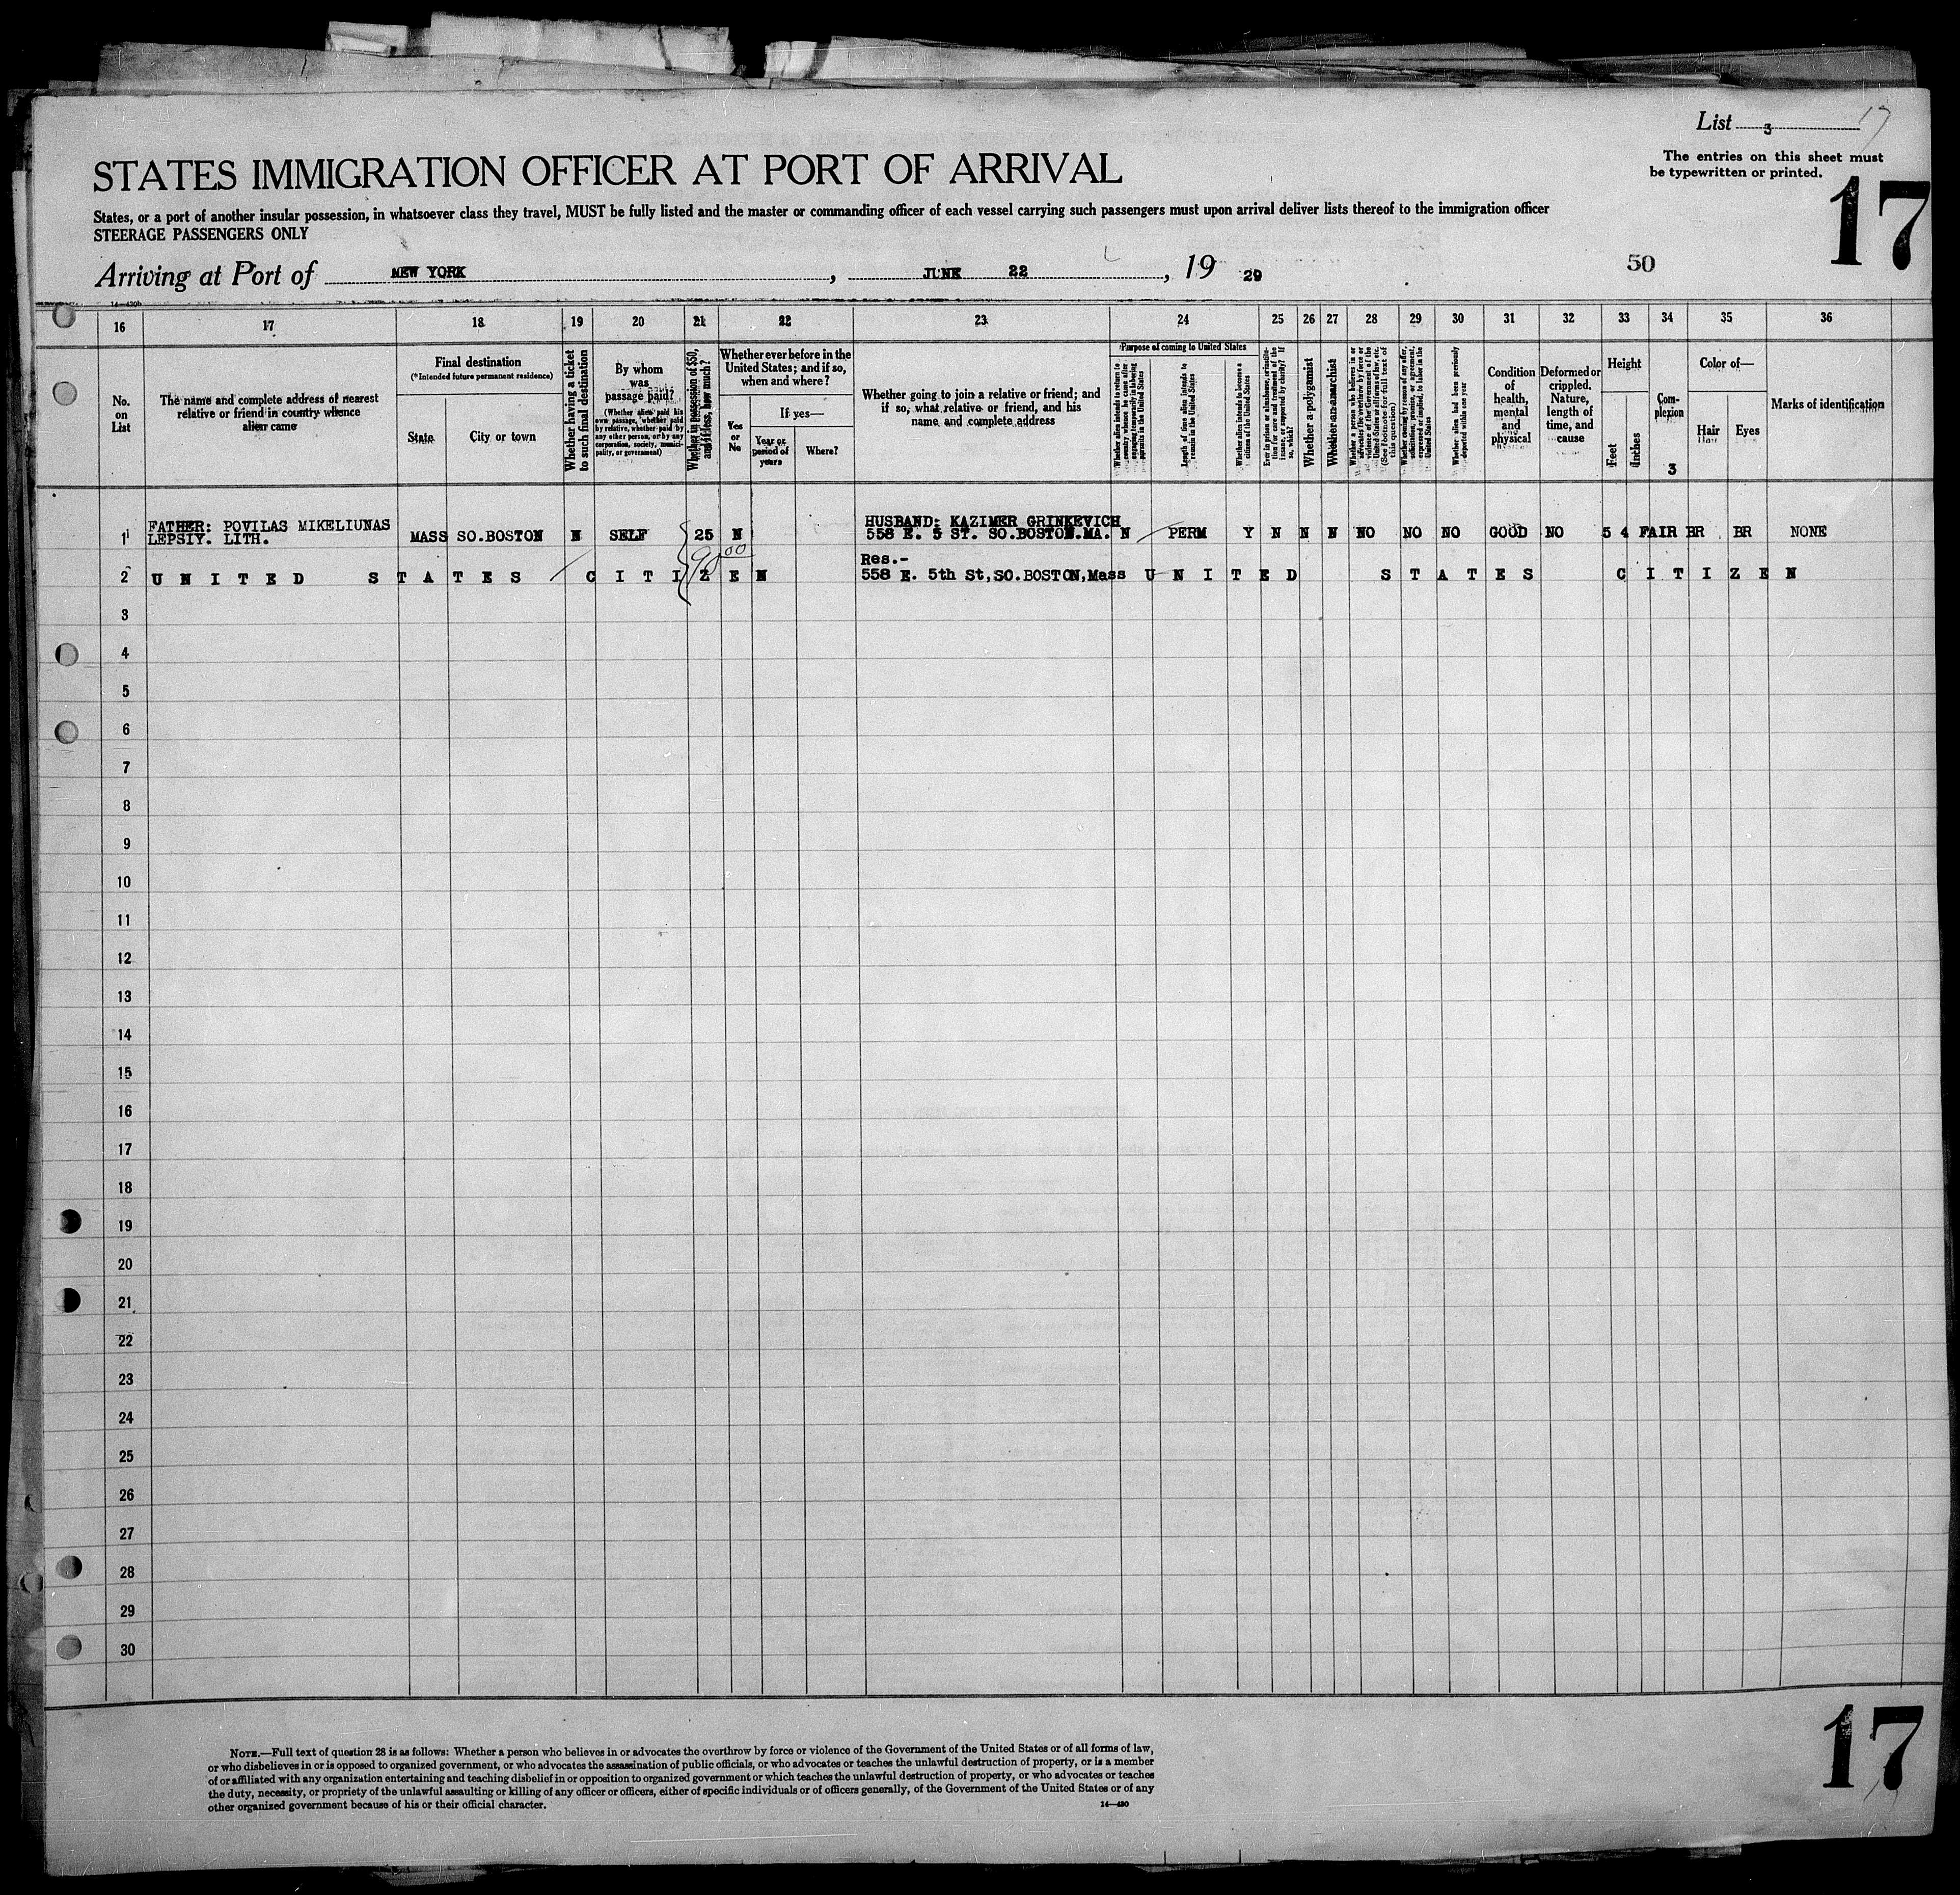 List 3 17
The entries on this sheet must
be typewritten or printed.
17
STATES IMMIGRATION OFFICER AT PORT OF ARRIVAL
States, or a port of another insular possession, in whatsoever class they travel, MUST be fully listed and the master or commanding officer of each vessel carrying such passengers must upon arrival deliver lists thereof to the immigration officer
STEERAGE PASSENGERS ONLY
Arriving at Port of NEW YORK, JUNE 22, 19 29
50
14—430b
16 17 18 19 20 21 22 23 24 25 26 27 28 29 30 31 32 33 34 35 36
No.
on
List
The name and complete address of nearest
relative or friend in country whence
alien came
Final destination
(*Intended future permanent residence)
State
City or town
Whether having a ticket
to such final destination
By whom
was
passage paid?
(Whether alien paid his
own passage, whether paid
by relative, whether paid by
any other person, or by any
corporation, society, munici-
pality, or government)
Whether in possession of $50,
and if less, how much?
Whether ever before in the
United States; and if so,
when and where?
Yes
or
No
If yes—
Year or
period of
years
Where?
Whether going to join a relative or friend; and
if so, what relative or friend, and his
name and complete address
Purpose of coming to United States
Whether alien intends to return to
country whence he came after
engaging temporarily in laboring
pursuits in the United States
Length of time alien intends to
remain in the United States
Whether alien intends to become a
citizen of the United States
Ever in prison or almshouse, or institu-
tion for care and treatment of the
insane, or supported by charity? If
so, which?
Whether a polygamist
Whether an anarchist
Whether a person who believes in or
advocates the overthrow by force or
violence of the Government of the
United States or all forms of law, etc.
(See footnote for full text of
this question)
Whether coming by reason of any offer,
solicitation, promise, or agreement,
expressed or implied, to labor in the
United States
Whether alien had been previously
deported within one year
Condition
of
health,
mental
and
physical
Deformed or
crippled.
Nature,
length of
time, and
cause
Height
Feet
Inches
Com-
plexion
3
Color of—
Hair
Eyes
Marks of identification
FATHER: POVILAS MIKELIUNAS
HUSBAND: KAZIMER GRINKEVICH
1 LEPSIY. LITH. MASS SO.BOSTON N SELF 25 N 558 E. 5 ST. SO.BOSTON.MA. N PERM Y N N N NO NO NO GOOD NO 5 4 FAIR BR BR NONE
90 00
Res.-
2 UNITED STATES CITIZEN 558 E. 5th St,SO.BOSTON,Mass UNITED STATES CITIZEN
3
4
5
6
7
8
9
10
11
12
13
14
15
16
17
18
19
20
21
22
23
24
25
26
27
28
29
30
NOTE.—Full text of question 28 is as follows: Whether a person who believes in or advocates the overthrow by force or violence of the Government of the United States or of all forms of law,
or who disbelieves in or is opposed to organized government, or who advocates the assassination of public officials, or who advocates or teaches the unlawful destruction of property, or is a member
of or affiliated with any organization entertaining and teaching disbelief in or opposition to organized government or which teaches the unlawful destruction of property, or who advocates or teaches
the duty, necessity, or propriety of the unlawful assaulting or killing of any officer or officers, either of specific individuals or of officers generally, of the Government of the United States or of any
other organized government because of his or their official character.
14—430
17